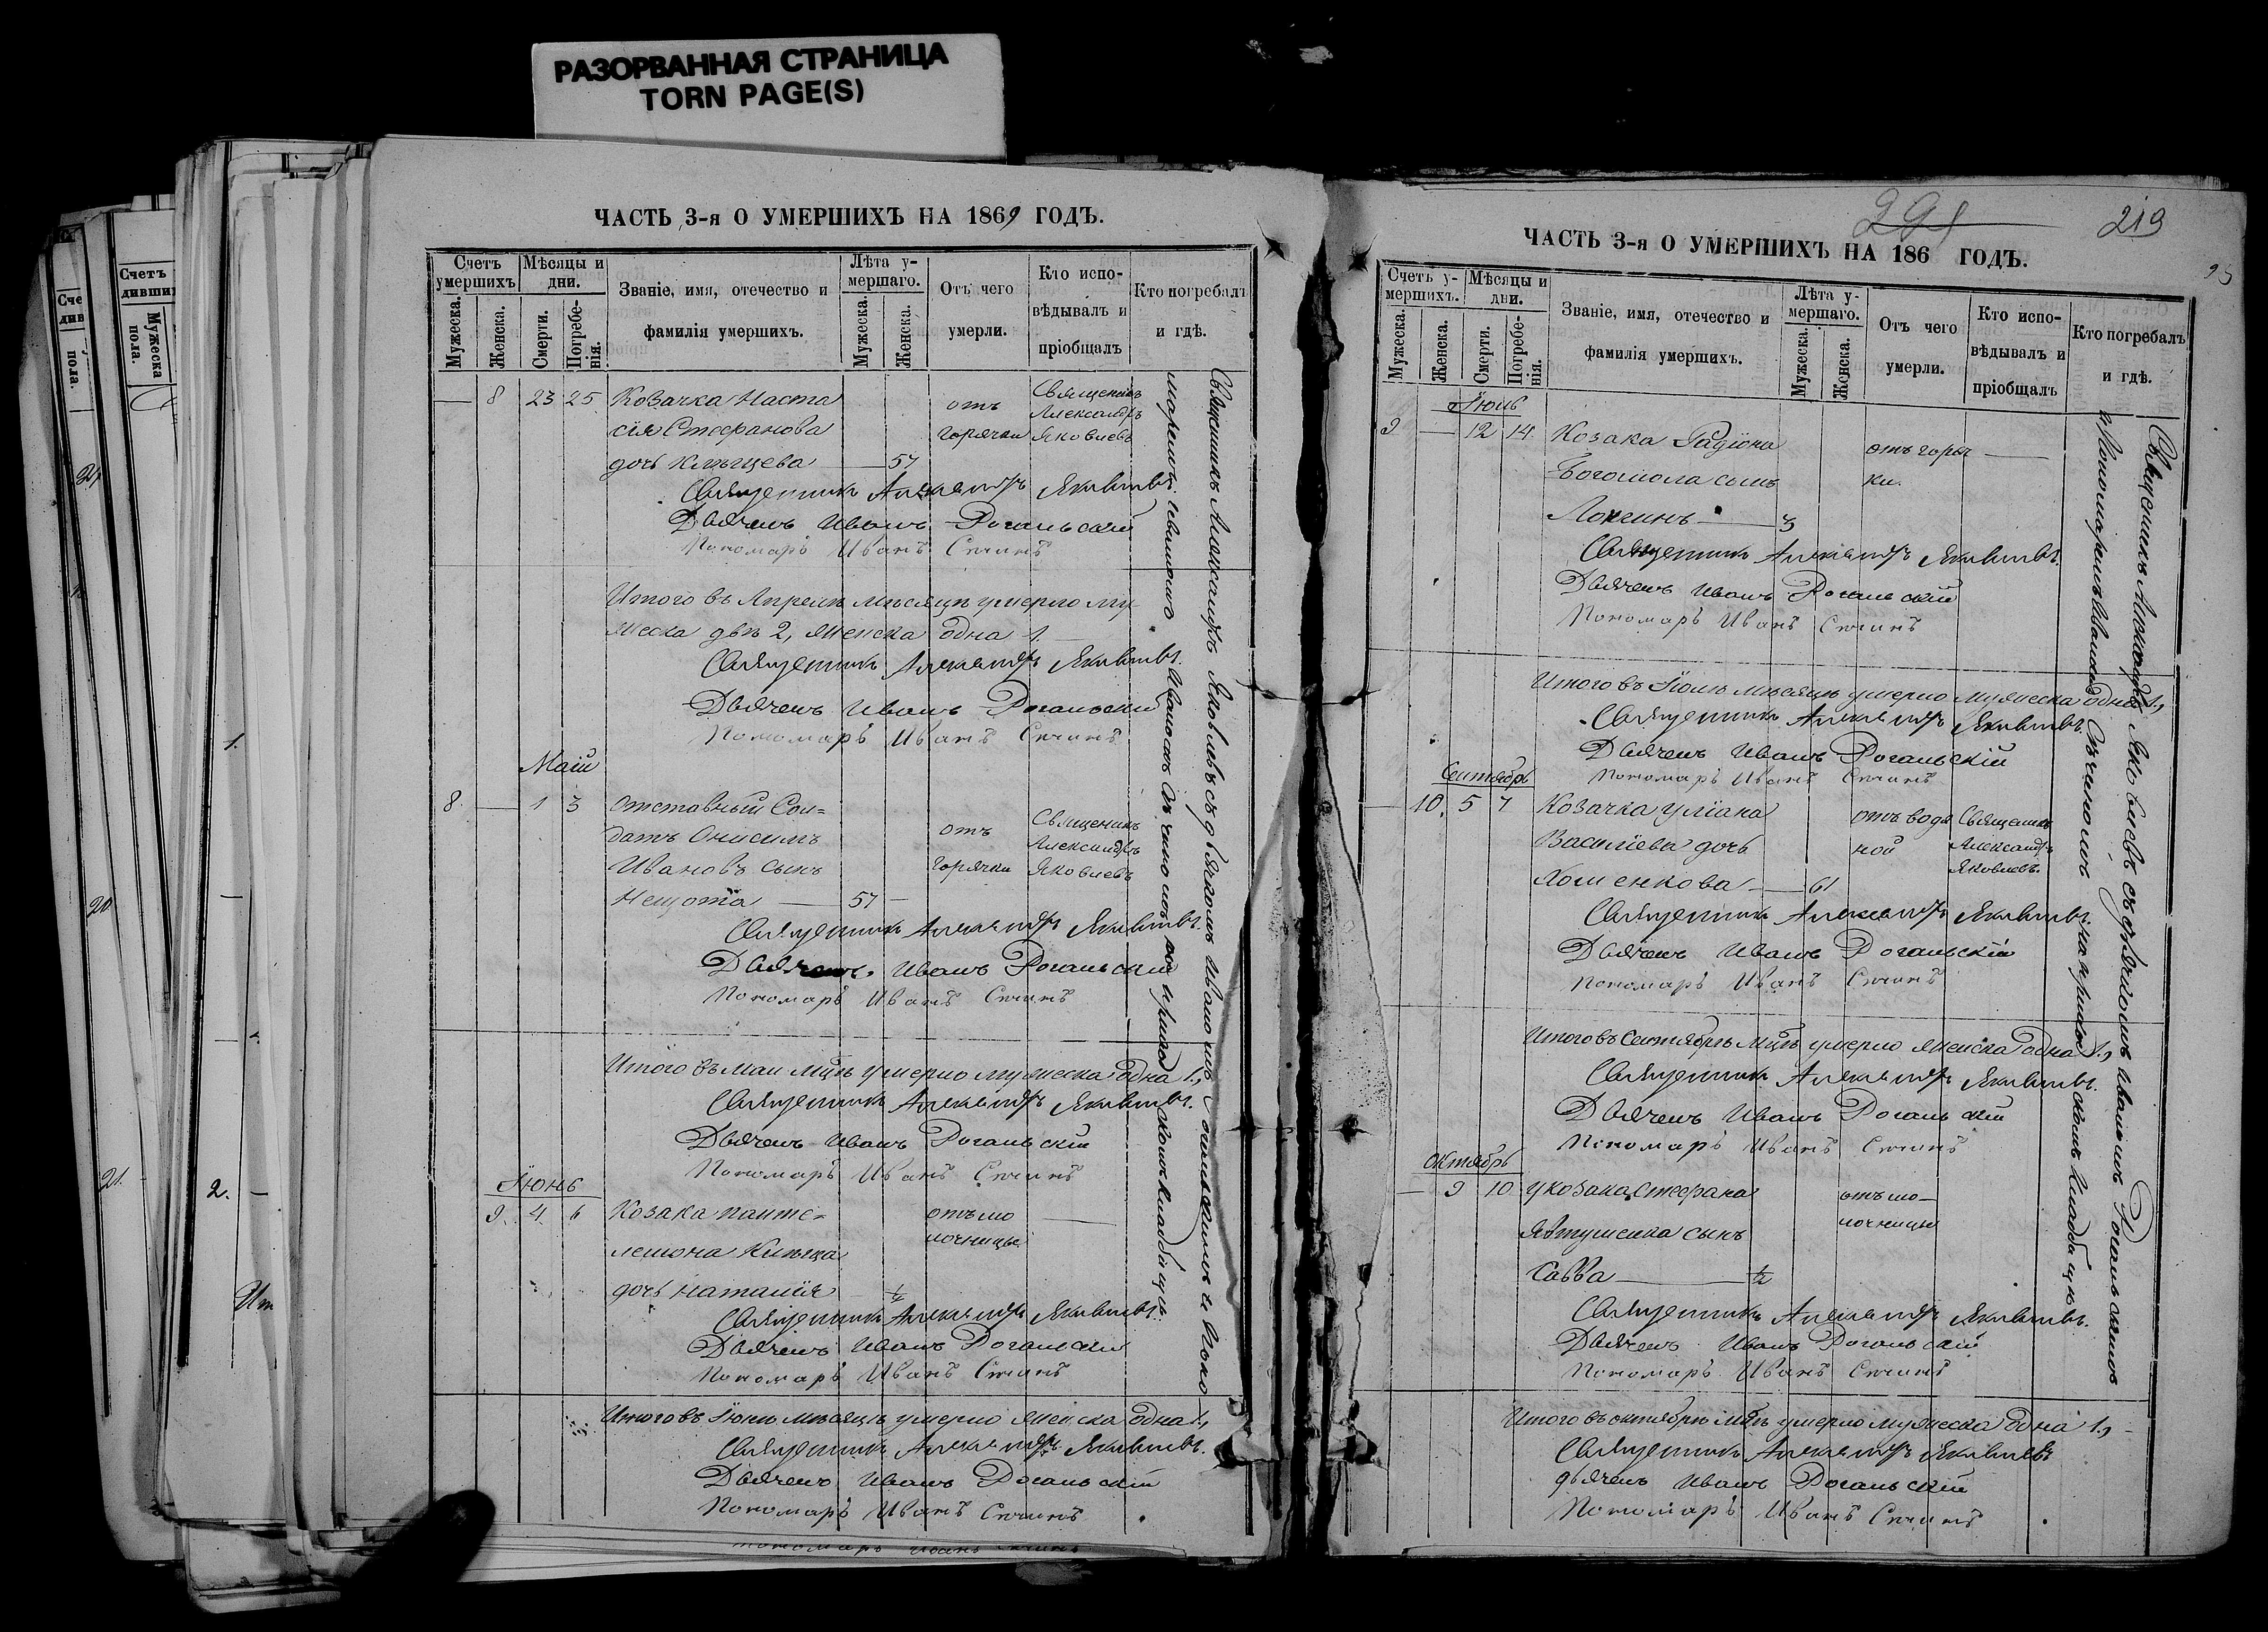 РАЗОРВАННАЯ СТРАНИЦА
TORN PAGE(S)
ЧАСТЬ 3-я О УМЕРШИХЪ НА 1869 ГОДЪ.
Счетъ умершихъ
Мѣсяцы и дни.
Званіе, имя, отечество и фамилія умершихъ.
Лѣта у-мершаго.
Отъ чего умерли.
Кто испо-вѣдывалъ и пріобщалъ
Кто погребалъ и гдѣ.
Мужеска.
Женска.
Смерти.
Погребе-нія.
Мужеска.
Женска.
— 8 23 25 Козачка Наста отъ Священникъ Александръ
сія Стефанова горячки Яковлевъ
дочь 57
Священникъ Александръ Яковлевъ
Дьячекъ Иванъ Рогальскій
Пономарь Иванъ Сѣчинъ
Итого въ Апрелѣ мѣсяцѣ умерло му-
жеска двѣ 2, женска одна 1.
Священникъ Александръ Яковлевъ.
Дьячекъ Иванъ Рогальскій
Пономарь Иванъ Сѣчинъ
Маій
8 — 1 3 Отставный Сол=
датъ Онисимъ отъ Священникъ Александръ
Ивановъ сынъ горячки Яковлевъ
57 —
Священникъ Александръ Яковлевъ.
Дьячекъ. Иванъ Рогальскій
Пономарь Иванъ Сѣчинъ
Итого въ Маи мцѣ умерло мужеска одна 1,
Священникъ Александръ Яковлевъ.
Дьячекъ Иванъ Рогальскій
Пономарь Иванъ Сѣчинъ
Іюнь
9. 4 6 Козака Панте= отъ мо
леимона лочницы
дочь Наталія
Священникъ Александръ Яковлевъ.
Дьячекъ Иванъ Рогальскій
Пономарь Иванъ Сѣчинъ
Итого въ Іюнѣ мѣсяцѣ умерло женска одна 1,
Священникъ Александръ Яковлевъ.
Дьячекъ Иванъ Рогальскій
Пономарь Иванъ Сѣчинъ
Священникъ Александръ Яковлевъ съ дьячкомъ Иваномъ Рогальскимъ и Поно
маремъ Иваномъ Сѣчинымъ на приходскомъ кладбищѣ.
291
219
ЧАСТЬ 3-я О УМЕРШИХЪ НА 186 ГОДЪ.
Счетъ у-мершихъ.
Мѣсяцы и дни.
Званіе, имя, отечество и фамилія умершихъ.
Лѣта у-мершаго.
Отъ чего умерли.
Кто испо-вѣдывалъ и пріобщалъ
Кто погребалъ и гдѣ.
Мужеска.
Женска.
Смерти.
Погребе-нія.
Мужеска.
Женска.
Іюль
9 — 12 14. Козака Радіона отъ горяч —
Богомола сынъ ки.
Логинъ — 3
Священникъ Александръ Яковлевъ.
Дьячекъ Иванъ Рогальскій
Пономарь Иванъ Сѣчинъ
Итого въ Іюлѣ мѣсяцѣ умерло мужеска одна 1,
Священникъ Александръ Яковлевъ.
Дьячекъ Иванъ Рогальскій
Пономарь Иванъ Сѣчинъ
Сентябрь
— 10. 5 7 Козачка Уліана отъ водя Священникъ
Василіева дочь ной Александръ
Хоменкова — 61 Яковлевъ.
Священникъ Александръ Яковлевъ.
Дьячекъ Иванъ Рогальскій
Пономарь Иванъ Сѣчинъ
Итого въ Сентябрѣ мцѣ умерло женска одна 1,
Священникъ Александръ Яковлевъ.
Дьячекъ Иванъ Рогальскій
Пономарь Иванъ Сѣчинъ
Октябрь
— 9 10 У козака Стефана отъ мо—
Явтушенка сынъ лочницы
Савва — ½
Священникъ Александръ Яковлевъ.
Дьячекъ Иванъ Рогальскій
Пономарь Иванъ Сѣчинъ
Итого въ октябрѣ мцѣ умерло мужеска одна 1,
Священникъ Александръ Яковлевъ
Дьячекъ Иванъ Рогальскій
Пономарь Иванъ Сѣчинъ
Священникъ Александръ Яковлевъ съ дьячкомъ Иваномъ Рогальскимъ
и Пономаремъ Иваномъ Сѣчинымъ на приходскомъ кладбищѣ